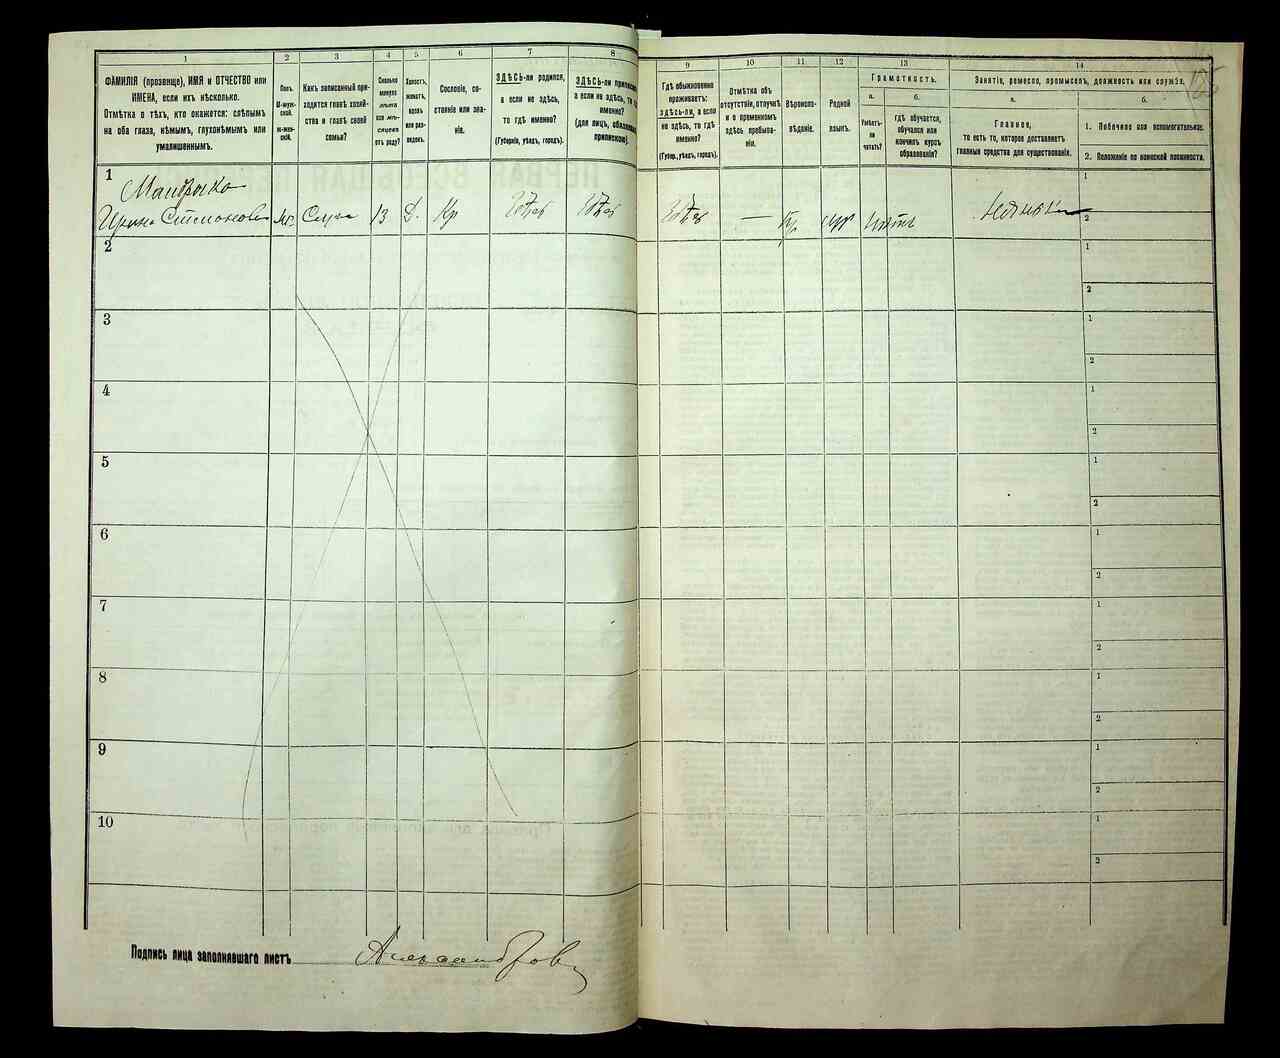 1
2
3
4
5
6
7
8
ФАМИЛІЯ (прозвище), ИМЯ и ОТЧЕСТВО или
ИМЕНА, если ихъ нѣсколько.
Отмѣтка о тѣхъ, кто окажется: слѣпымъ
на оба глаза, нѣмымъ, глухонѣмымъ или
умалишеннымъ.
Полъ.
М-муж-
ской.
Ж-жен-
скій.
Какъ записанный при-
ходится главѣ хозяй-
ства и главѣ своей
семьи?
Сколько
минуло
лѣтъ
или мѣ-
сяцевъ
отъ роду?
Холостъ,
женатъ,
вдовъ
или раз-
веденъ.
Сословіе, со-
стояніе или зва-
ніе.
ЗДѢСЬ-ли родился,
а если не здѣсь,
то гдѣ именно?
(Губернія, уѣздъ, городъ).
ЗДѢСЬ-ли
а если не здѣсь, то
именно?
(для лицъ,
припискою).
1
Ирина
Слуга
13
Д.
Кр
Здѣсь
Здѣсь
2
3
4
5
6
7
8
9
10
Подпись лица заполнявшаго листъ
Александровъ
9
10
11
12
13
14
Гдѣ обыкновенно
проживаетъ:
здѣсь-ли, а если
не здѣсь, то гдѣ
именно?
(Губер., уѣздъ, городъ).
Отмѣтка объ
отсутствіи, отлучкѣ
и о временномъ
здѣсь пребыва-
ніи.
Вѣроиспо-
вѣданіе.
Родной
языкъ.
Грамотность.
а.
б.
Умѣетъ-
ли
читать?
гдѣ обучается,
обучался или
кончилъ курсъ
образованія?
Занятіе, ремесло, промыселъ, должность или служба.
а.
б.
Главное,
то есть то, которое доставляетъ
главныя средства для существованія.
1. Побочное или вспомогательное.
2. Положеніе по воинской повинности.
Здѣсь
—
1
2
1
2
1
2
1
2
1
2
1
2
1
2
1
2
1
2
1
2